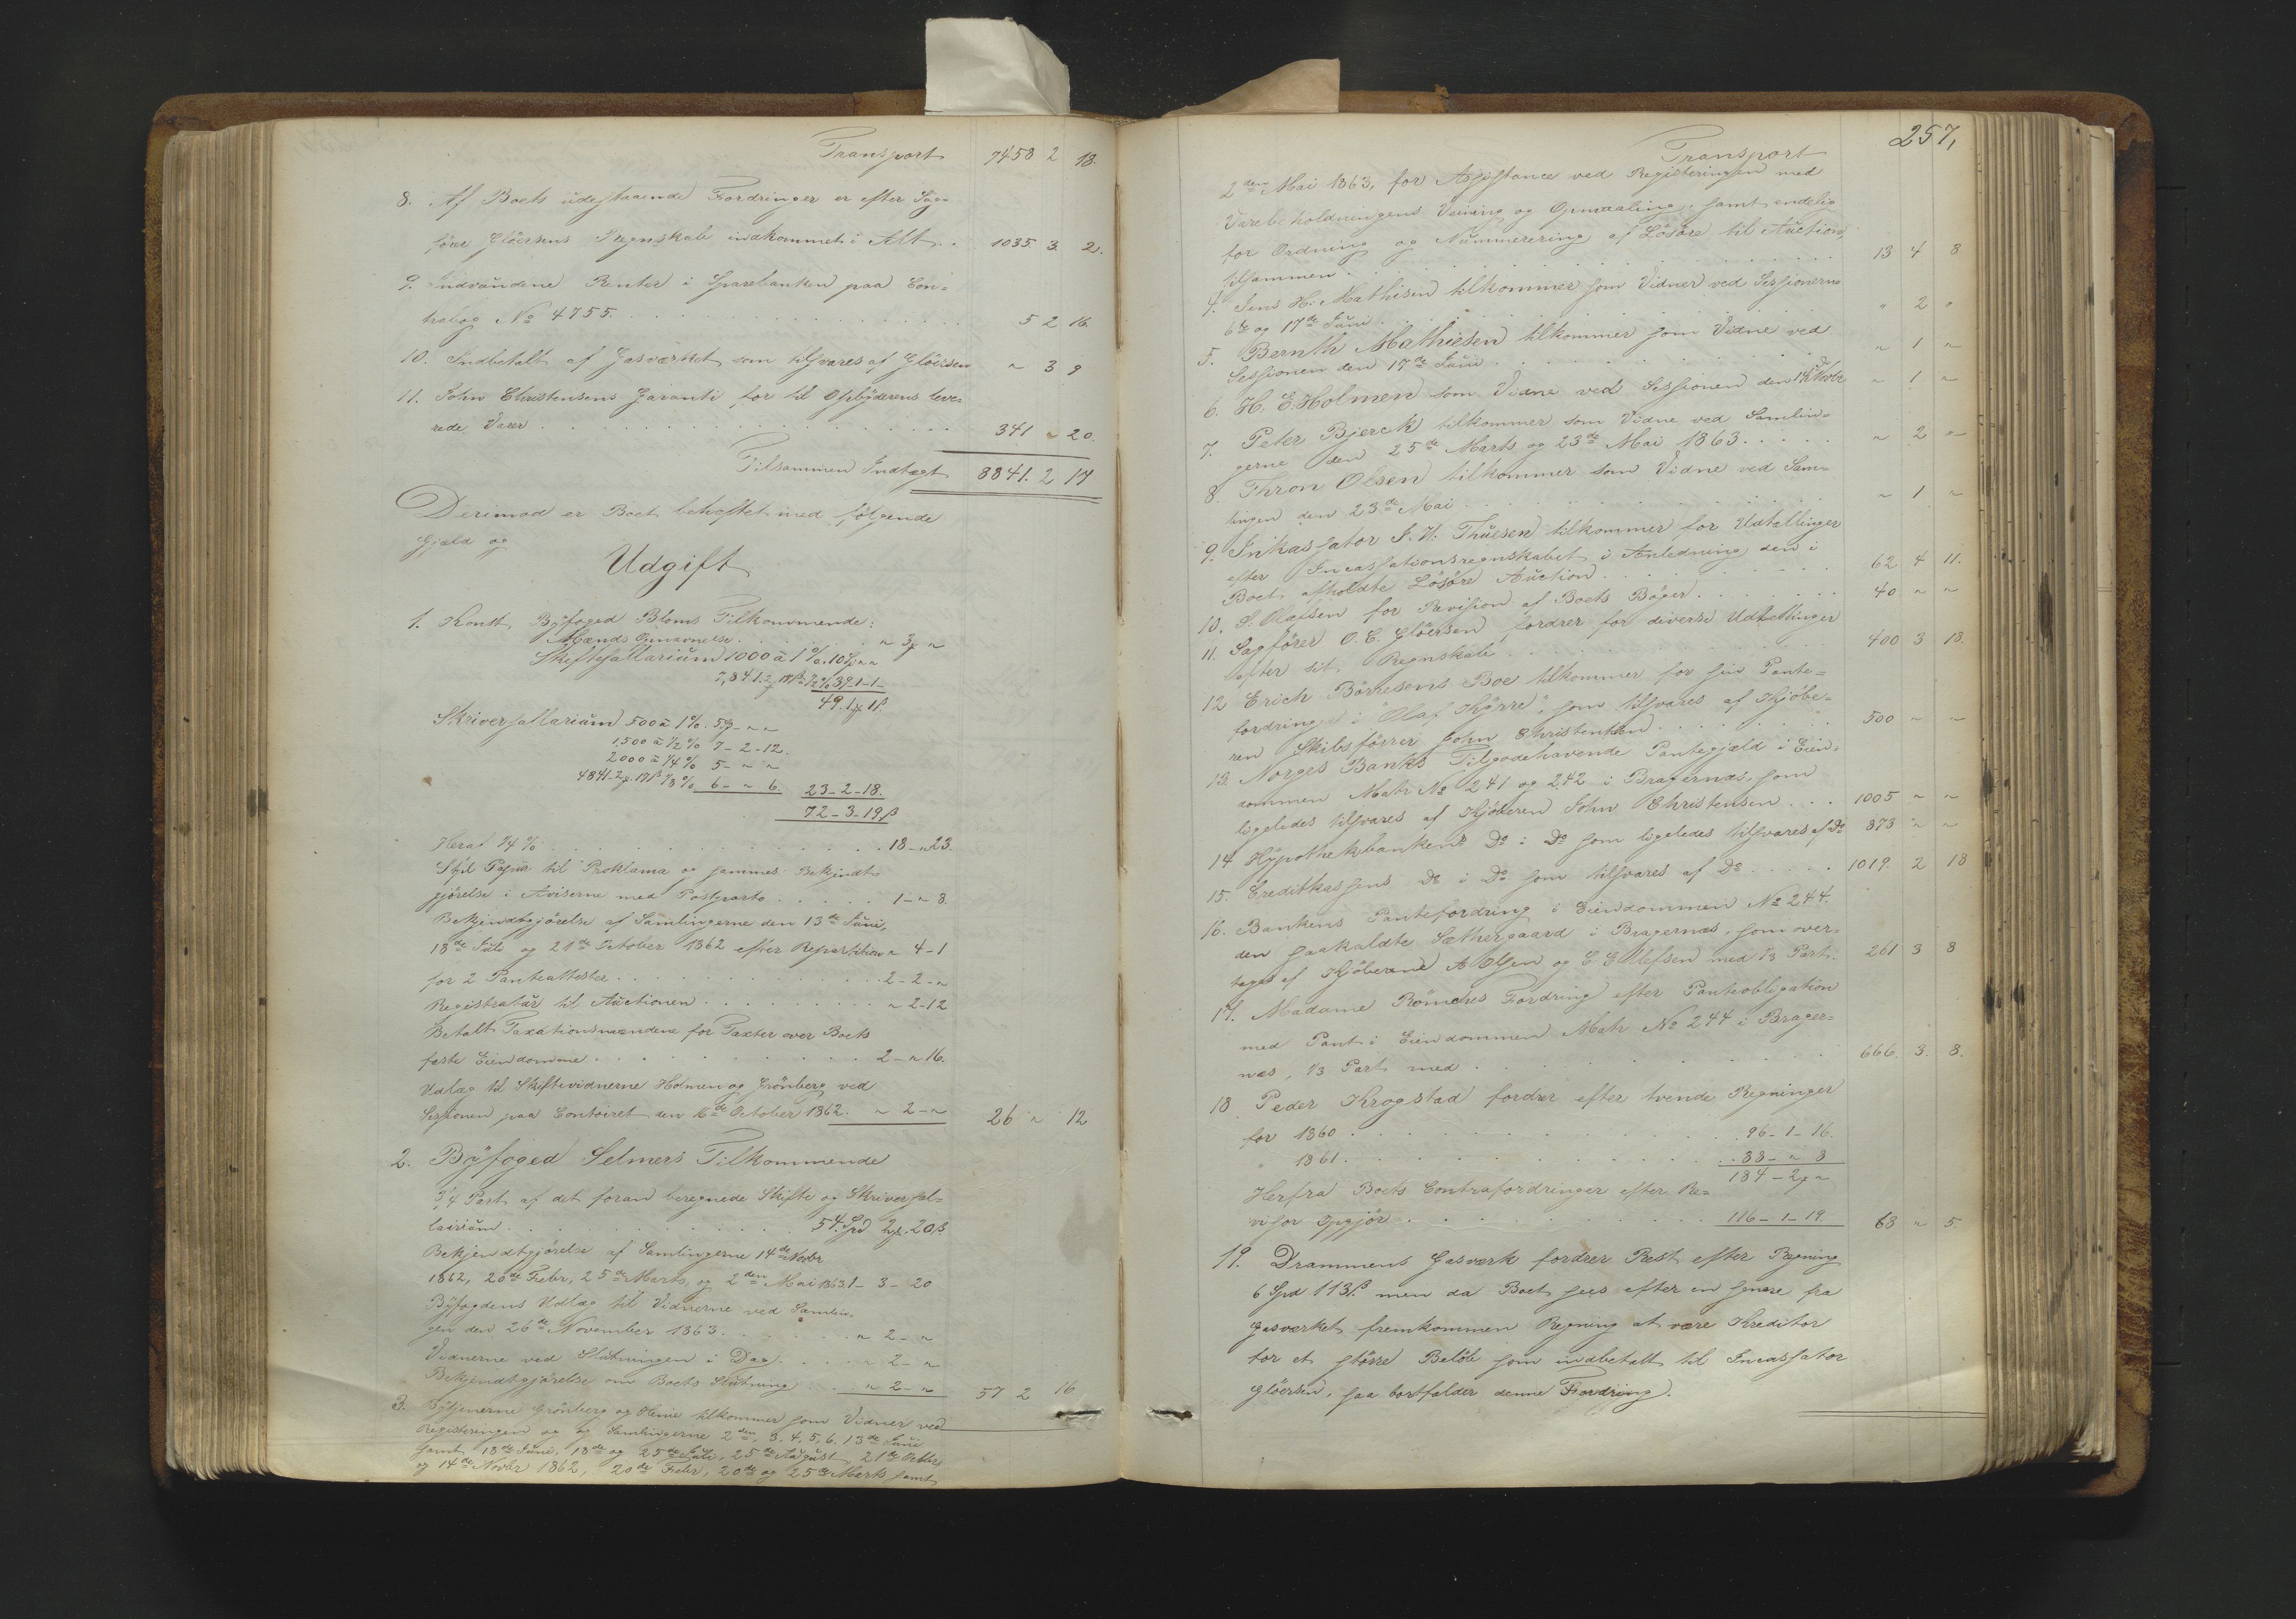 Transport 7458 2 18.
8. Af Boets udestaaende Fordringer er efter Sag-
fører Gløersens Regnskab indkommet i Alt . . 1035. 3. 2.
9. Indvundne Renter i Sparebanken paa Con-
trabog No 4755. . . . 5 2 16.
10. Indbetalt af Gasværket som tilsvares af Gløersen " 3 9
11. John Christensens Garanti for til Opbyderens leve-
rede Varer . . . 341 " 20.
Tilsammen Indtægt 8841. 2 17
Derimod er Boet behæftet med følgende
Gjæld og
Udgift
1. Konst. Byfoged Bloms Tilkommende:
Mænds Opnævnelse . . . " 3 "
Skiftesallarium 1000 à 1 %. 10 Sp " "
7,841. 2 17β ½ % 39-1-1-
49. 1 1β.
Skriversallarium 500 à 1%. 5 - " "
1,500 à ½ % 7-2-12.
2000 à ¼ % 5- " "
4841-2. 17β ⅛ % 6- " 6. 23-2-18.
72-3-19β
Heraf ¼ % . . . 18-"23.
Stpl Papiir til Proklama og sammes Bekjendt-
gjørelse i Aviserne med Postporto . . . 1-"-8.
Bekjendtgjørelse af Samlingerne den 13de Juni,
18de Juli og 21de October 1862 efter Repartition " 4-1
for 2 Panteattester . . . 2-2-"
Registratur til Auctionen . . . " 2-12
Betalt Taxationsmændene for Taxter over Boets
faste Eiendomme . . . 2-"16.
Udlæg til Skiftevidnerne Holmen og Grønberg ved
Sessionen paa Contoiret den 16de October 1862. " 2-" 26 " 12
2. Byfoged Selmers Tilkommende
¾ Part af det foran beregnede Skifte og Skriversal-
larium . . . 54. Spd 2. 20β.
Bekjendtgjørelse af Samlingerne 14de Novbr
1862, 20de Febr, 25de Marts, og 2den Mai 1863 1-3-20
Byfogdens Udlæg til Vidnerne ved Samlin-
gen den 26de November 1863 . . . " 2-"
Vidnerne ved Slutningen i Dag . . . " 2-"
Bekjendtgjørelse om Boets Slutning . . " 2-" 57 2 16
3. Bytjenerne Grønberg og Henie tilkommer som Vidner ved
Registeringen og Samlingerne 2den, 3, 4, 5, 6, 13de Juni
samt 18de Juni, 18de og 25de Juli, 25de August, 21de Octbr
og 14de Novbr 1862, 20de Febr, 20de og 25de Marts samt
257,
Transport
2den Mai 1863, for Assistance ved Registeringen med
Varebeholdningens Veining og Opmaaling, samt endelig
for Ordning og Nummerering af Løsøre til Auction,
tilsammen . . . 13 4 8
4. Jens H. Mathisen tilkommer som Vidner ved Sessionerne
6te og 17de Juni . . . " 2 "
5. Bernth Mathiesen tilkommer som Vidne ved
Sessionen den 17de Juni . . . " 1 "
6. H. E. Holmen som Vidne ved Sessionen den 14de Novbr " 1 "
7. Peter Bjerck tilkommer som Vidne ved Samlin-
gerne den 25de Marts og 23de Mai 1863 . . . " 2 "
8. Thron Olsen tilkommer som Vidne ved Sam-
lingen den 23de Mai . . . " 1 "
9. Inkassator J. U. Thuesen tilkommer for Udtællinger
efter Incassationsregnskabet i Anledning den i
Boet afholdte Løsøre Auction . . . 62 4 11.
10. S. Olafsen for Revision af Boets Bøger . . . 40 " "
11. Sagfører O. C. Gløersen fordrer for diverse Udtællinger
efter sit Regnskab . . . 400 3 13.
12 Erich Børresens Boe tilkommer for sin Pante-
fordringer i "Olaf Kyrre", som tilsvares af Kjøbe-
ren Skibsfører John Christensen . . . 500 " "
13. Norges Banks Tilgodehavende Pantegjæld i Eien-
dommen Matr No 241 og 242 i Bragernæs, som
ligeledes tilsvares af Kjøberen John Christensen . . . 1005 " "
14 Hypothekbankens Do i Do som ligeledes tilsvares af Do 873 " "
15. Creditkassens Do i Do som tilsvares af Do . . . 1019. 2 18
16. Bankens Pantefordring i Eiendommen No 244.
den saakaldte Sæthergaard i Bragernæs, som over-
tages af Kjøberne A Olsen og E Ellefsen med ⅓ Part. 261 3 8
17. Madame Rømckes Fordring efter Panteobligation
med Pant i Eiendommen Matr No 244 i Brager-
næs, ⅓ Part med . . . 666. 3. 8.
18. Peder Krogstad fordrer efter tvende Regninger
for 1860 . . . 96-1-16.
" 1861 . . . 88-" 8
184-2 "
Herfra Boets Contrafordringer efter Re-
visor Opgjør . . . 116-1-19. 68 " 5.
19. Drammens Gasværk fordrer Rest efter Regning
6 Spd 113β men da Boet sees efter en senere fra
Gasværket fremkommen Regning at være Kreditor
for et større Beløb som indbetalt til Incassator
Gløersen, saa bortfalder denne Fordring.